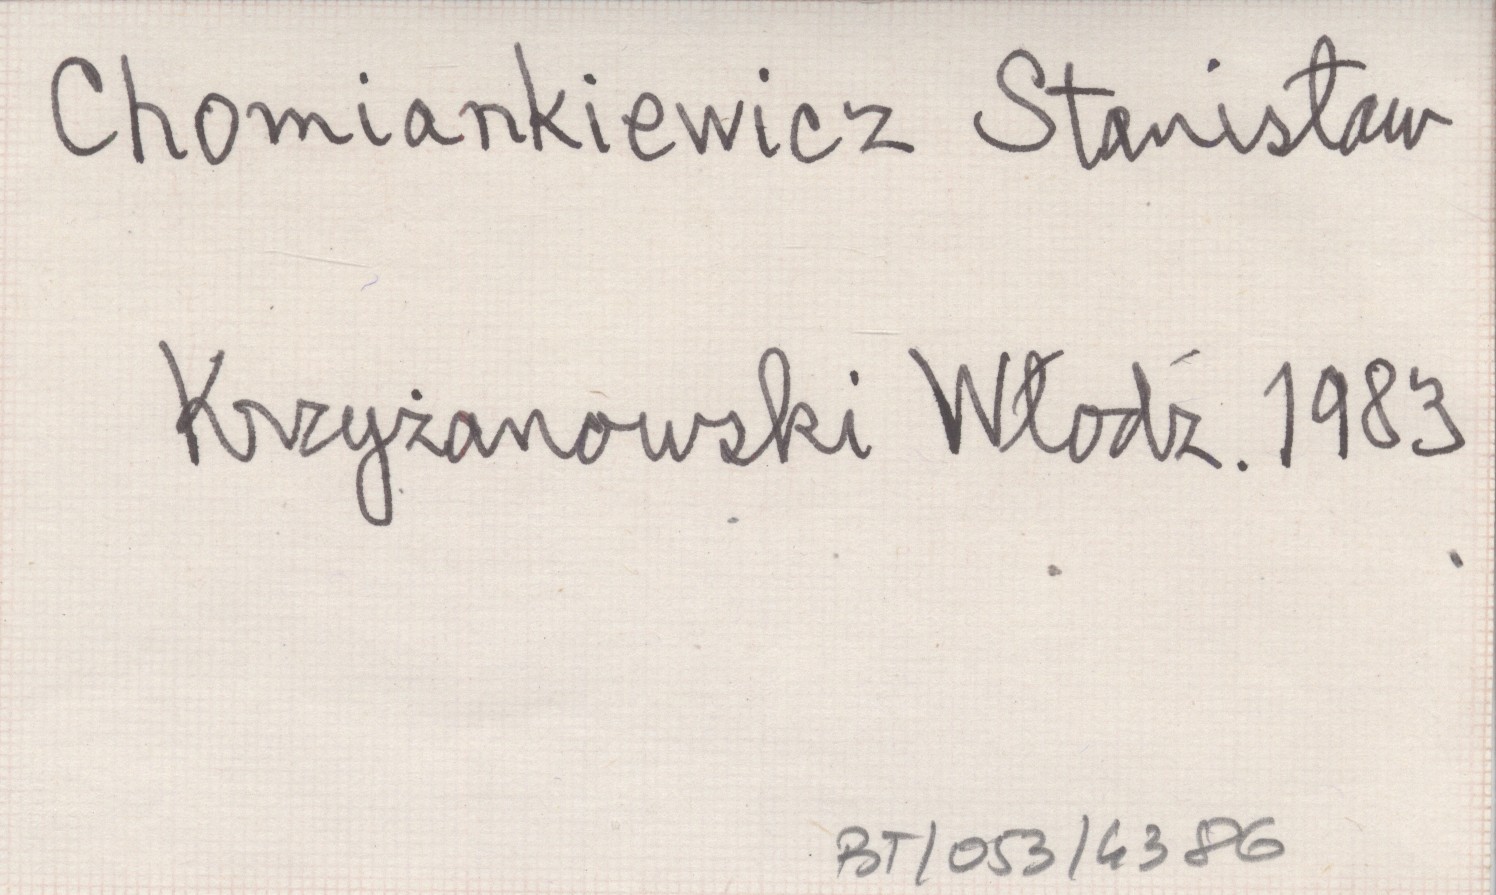 Chomiankiewicz Stanisław
Krzyżanowski Włodź. 1983
BT/053/4386